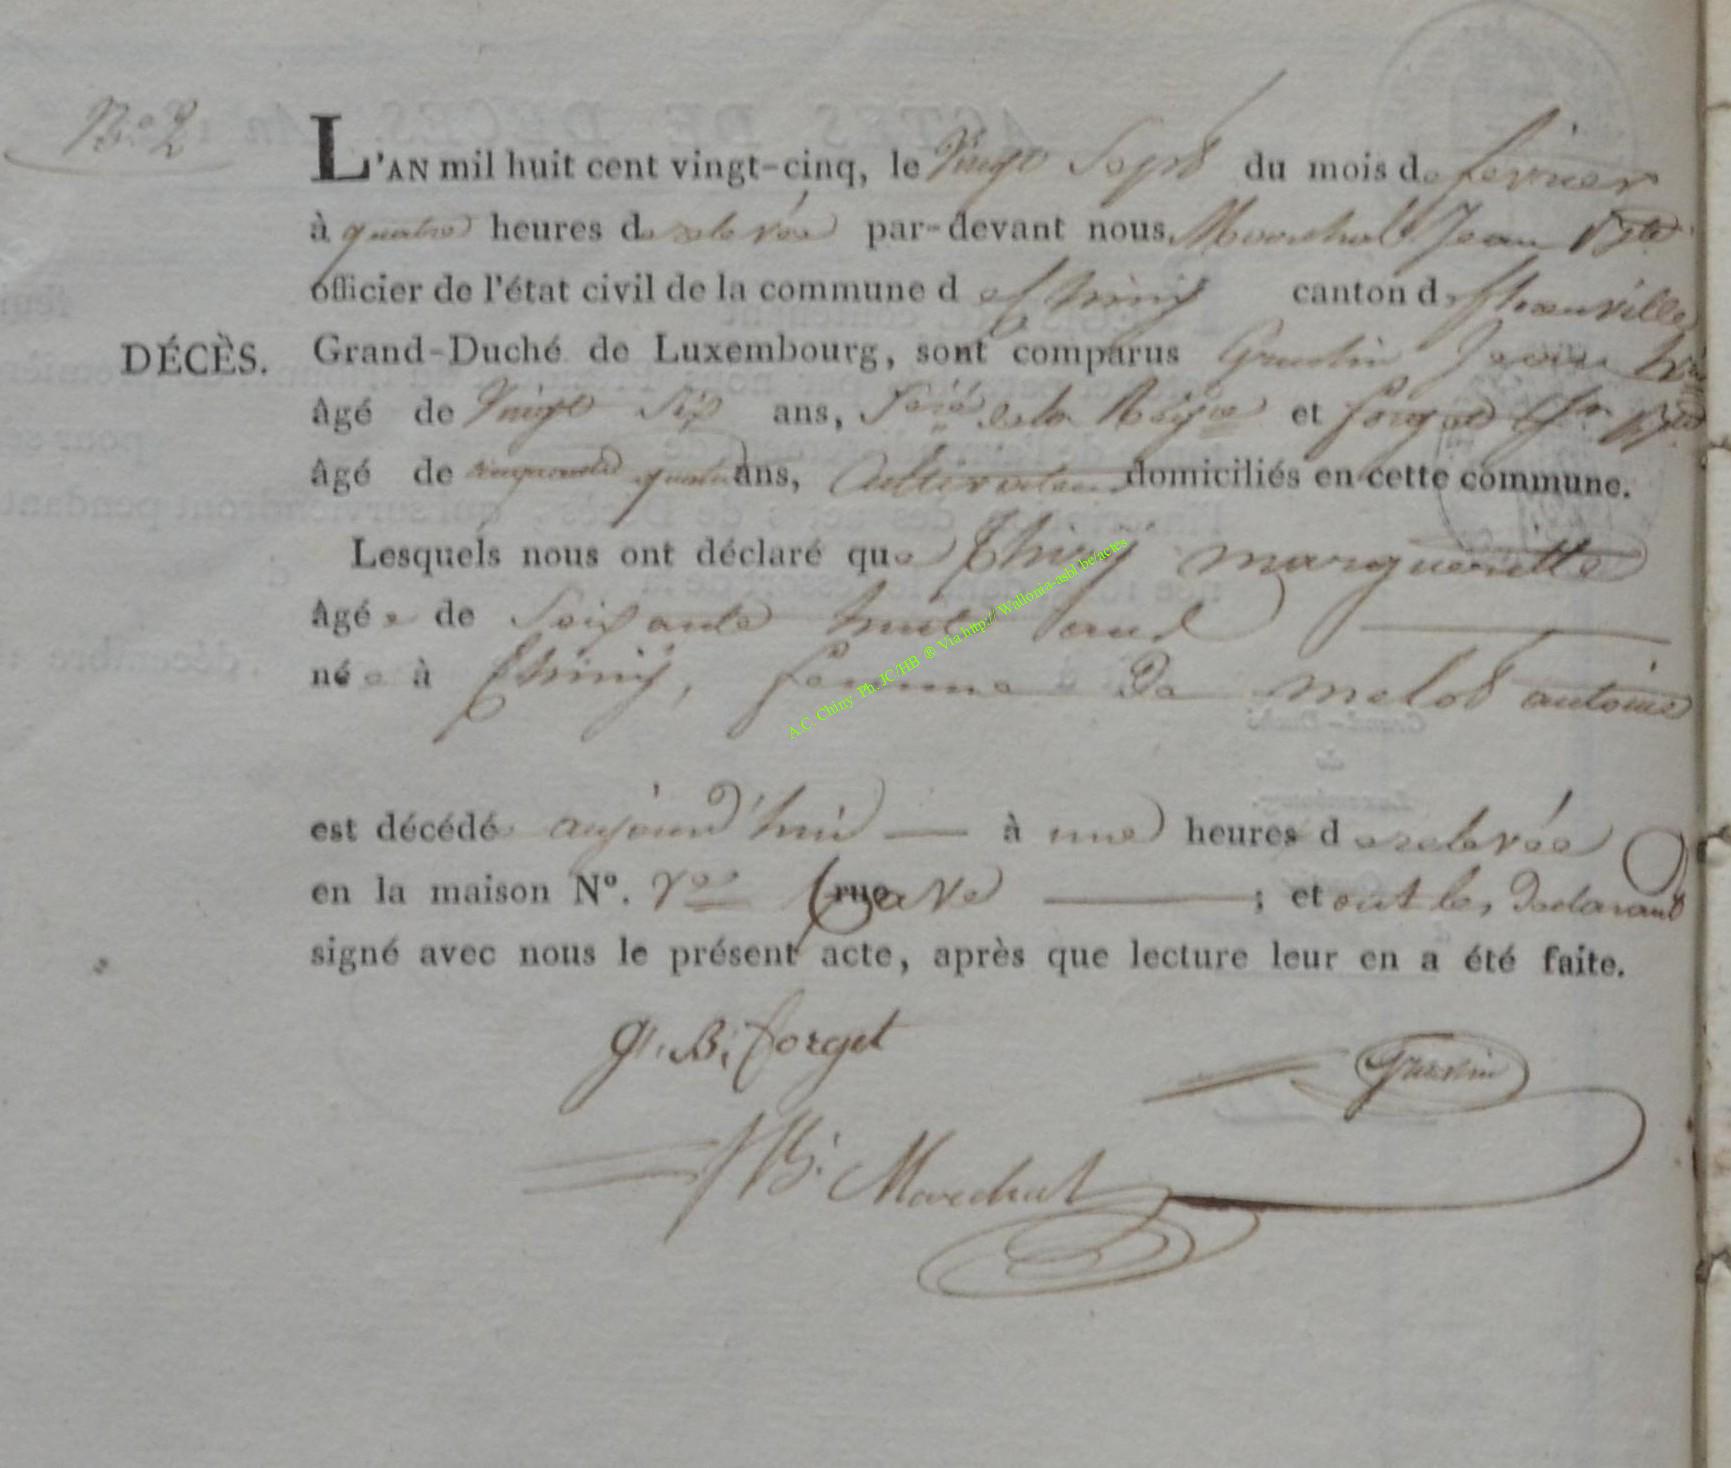 N.o 2
L'AN mil huit cent vingt-cinq, le Vingt Sept du mois de fevrier
à quatre heures de relevée par-devant nous Marechal Jean Bte
officier de l'état civil de la commune de Chiny canton d'Etheauville
DÉCÈS. Grand-Duché de Luxembourg, sont comparus Jean
âgé de Vingt Six ans, de la et forget Bte
âgé de cinquante quatre ans, Cultivateur domiciliés en cette commune.
Lesquels nous ont déclaré que Thiry margueritte
âgée de Soixante huit ans
née à Chiny, femme de melot antoine
est décédé aujourd'hui à une heures de relevée
en la maison N°. rue ; et ont les declarant
signé avec nous le présent acte, après que lecture leur en a été faite.
B. forget
JB. Marechal
A.C. Chiny Ph. JC HB ® Via http://Wallonia-asbl.be/actes